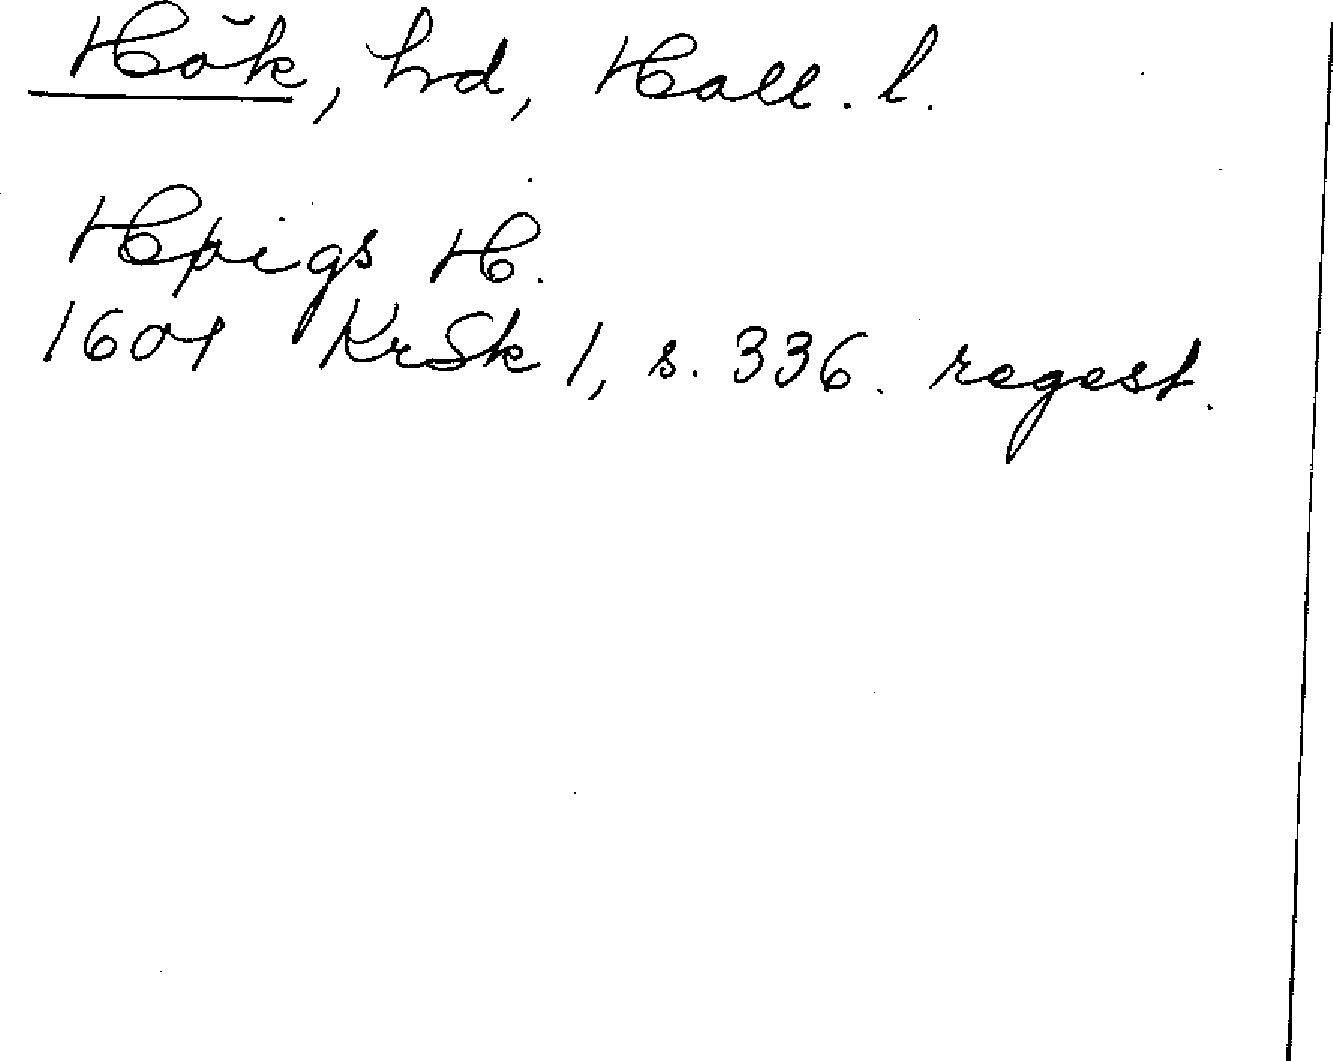 Hök, hd, Hall. l.
Høigs H.
1601 KrSk 1, s. 336. regest.